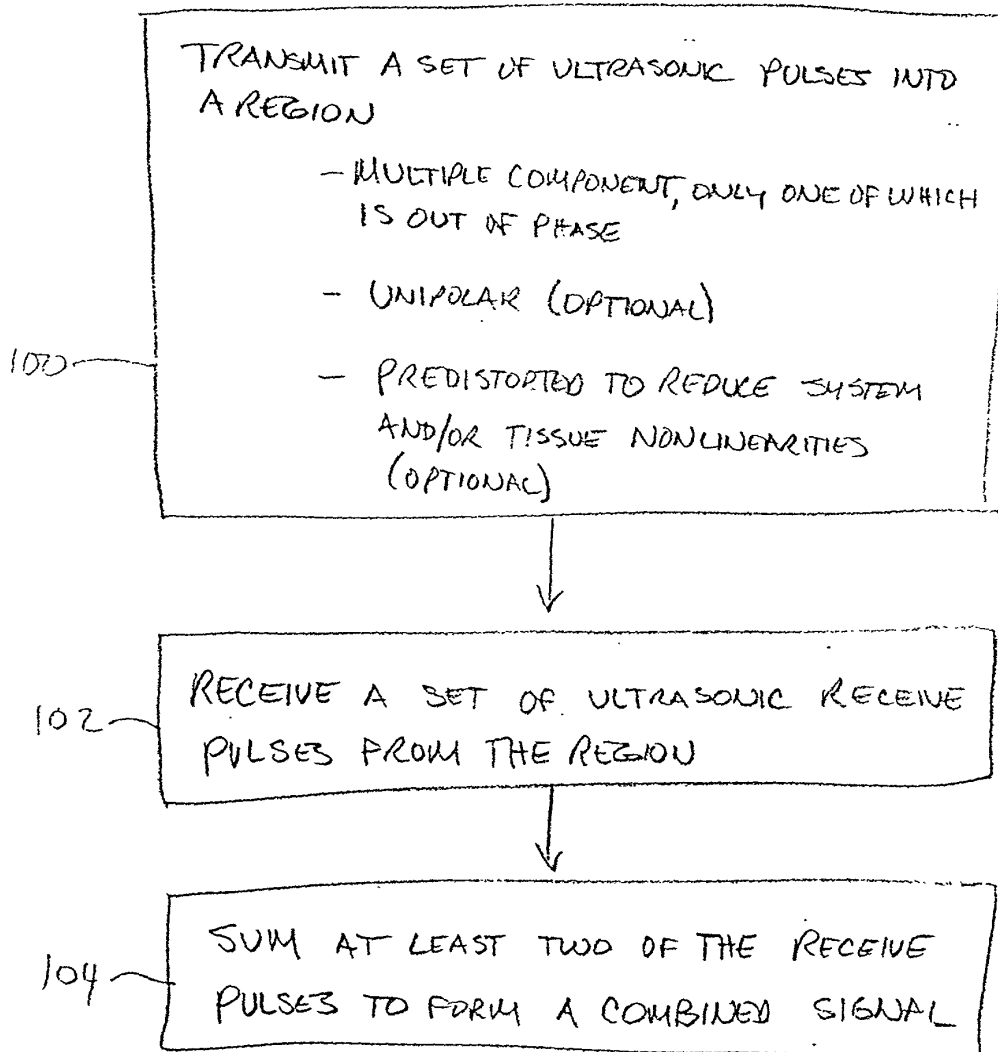 TRANSMIT A SET OF ULTRASONIC PULSES INTO
A REGION
- MULTIPLE COMPONENT, ONLY ONE OF WHICH
IS OUT OF PHASE
- UNIPOLAR (OPTIONAL)
100
- PREDISTORTED TO REDUCE SYSTEM
AND/OR TISSUE NONLINEARITIES
(OPTIONAL)
102
RECEIVE A SET OF ULTRASONIC RECEIVE
PULSES FROM THE REGION
104
SUM AT LEAST TWO OF THE RECEIVE
PULSES TO FORM A COMBINED SIGNAL